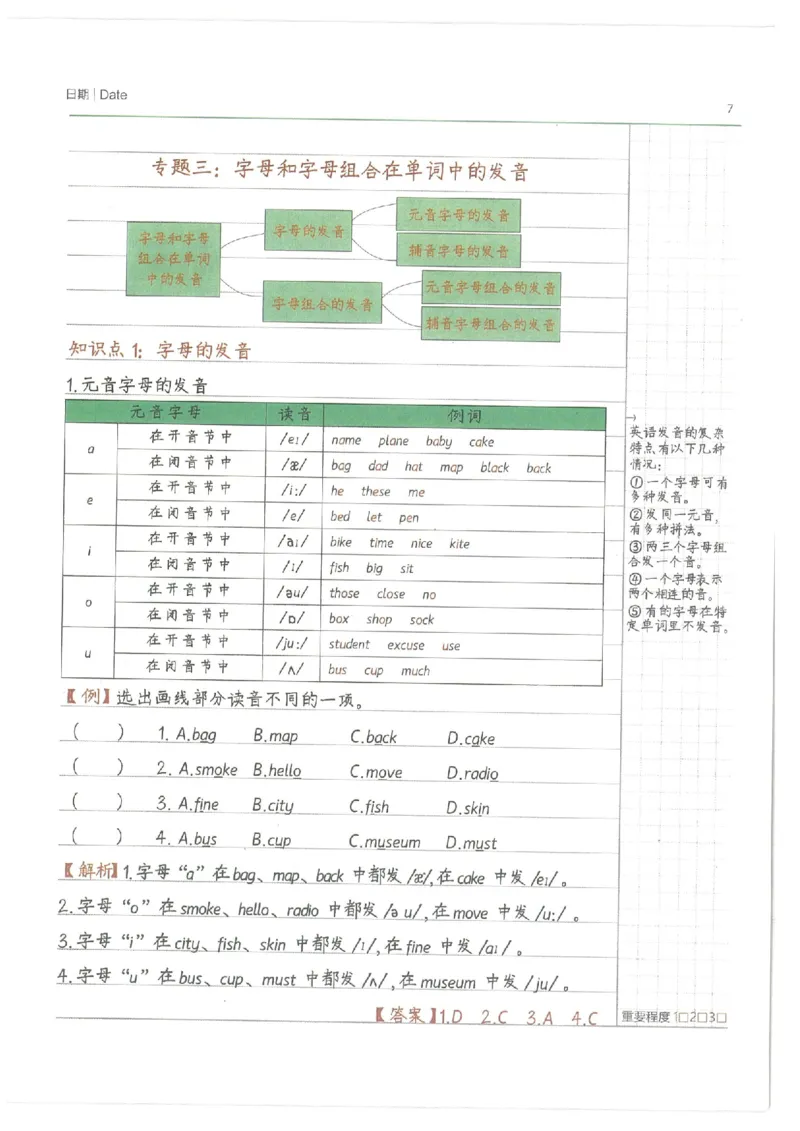 日期 | Date
7
专题三：字母和字母组合在单词中的发音
字母和字母
组合在单词
中的发音
字母的发音
元音字母的发音
辅音字母的发音
字母组合的发音
元音字母组合的发音
辅音字母组合的发音
知识点1：字母的发音
1.元音字母的发音
元音字母 读音 例词
a 在开音节中 /eɪ/ name plane baby cake
在闭音节中 /æ/ bag dad hat map black back
e 在开音节中 /i:/ he these me
在闭音节中 /e/ bed let pen
i 在开音节中 /aɪ/ bike time nice kite
在闭音节中 /ɪ/ fish big sit
o 在开音节中 /əu/ those close no
在闭音节中 /ɒ/ box shop sock
u 在开音节中 /ju:/ student excuse use
在闭音节中 /ʌ/ bus cup much
→
英语发音的复杂
特点有以下几种
情况：
①一个字母可有
多种发音。
②发同一元音，
有多种拼法。
③两三个字母组
合发一个音。
④一个字母表示
两个相连的音。
⑤有的字母在特
定单词里不发音。
【例】选出画线部分读音不同的一项。
( ) 1. A.bag B.map C.back D.cake
( ) 2. A.smoke B.hello C.move D.radio
( ) 3. A.fine B.city C.fish D.skin
( ) 4. A.bus B.cup C.museum D.must
【解析】1.字母“a”在bag、map、back 中都发/æ/,在cake 中发/eɪ/。
2.字母“o”在smoke、hello、radio 中都发/ə u/,在move 中发/u:/ 。
3.字母“i”在city、fish、skin 中都发/ɪ/,在fine 中发/aɪ/ 。
4.字母“u”在bus、cup、must 中都发/ʌ/,在museum 中发/ju/ 。
【答案】1.D 2.C 3.A 4.C
重要程度 1□2□3□